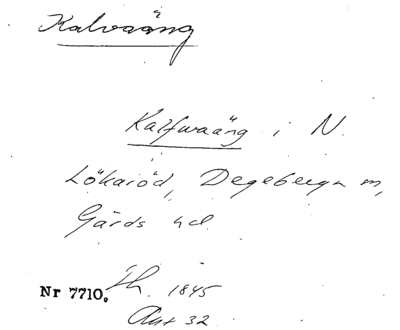 Kalvaäng
Kalfwaäng i N.
Lökaröd, Degeberga sn,
Gärds hd.
Nr 7710. Th. 1845
Akt 32